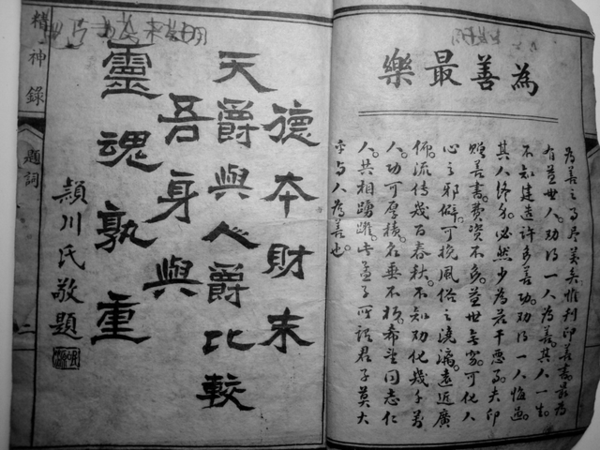 為善最樂
為善之事尽美矣惟刊印善書最为
有益世人。劝得一人為善。其人一生。
不知建造許多善功。劝得一人悔過。
其人終身。必然少為若干悪事。夫印
贈善書。費資不多。益世無窮。可化人
心之邪僻。可挽風俗之澆漓。遠近廣
佈。流传幾百春秋。不知劝化幾千萬
人。功可厚積。名垂不朽。希望同志仁
人。共相踴躍。此孟子所謂君子莫大
乎与人為善也。
德本財末
天爵與人爵比較
吾身與
靈魂孰重
頴川氏敬題
精神錄
題詞
二